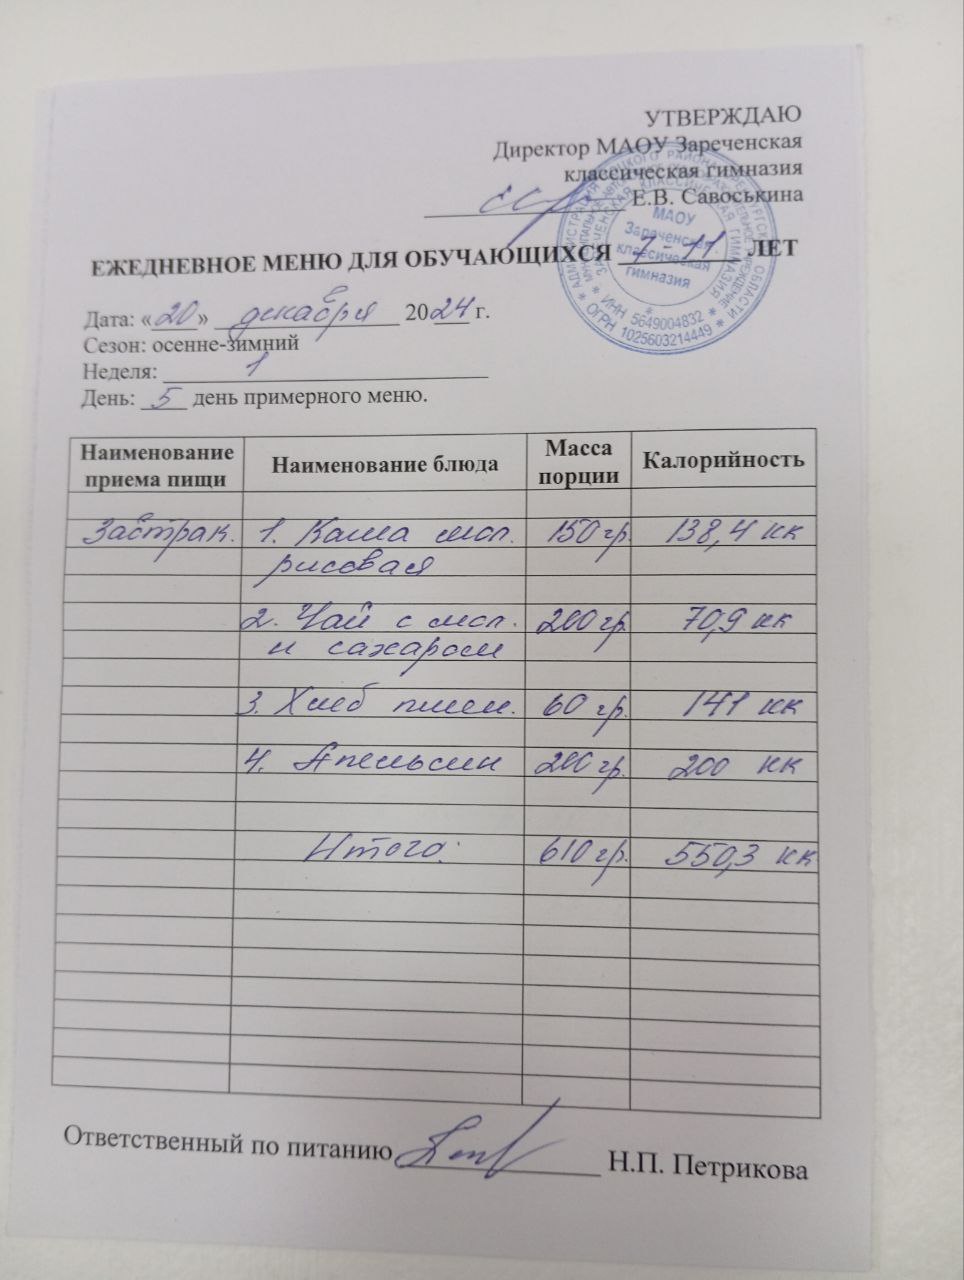 УТВЕРЖДАЮ
Директор МАОУ Зареченская
классическая гимназия
Е.В. Савоськина
ЕЖЕДНЕВНОЕ МЕНЮ ДЛЯ ОБУЧАЮЩИХСЯ 7-11 ЛЕТ
Дата: «20» декабря 2024 г.
Сезон: осенне-зимний
Неделя: 1
День: 5 день примерного меню.
Наименование приема пищи Наименование блюда Масса порции Калорийность
Завтрак. 1. Каша мол. 150 гр. 138,4 кк
рисовая
2. Чай с мол. 200 гр. 70,9 кк
и сахаром
3. Хлеб пшен. 60 гр. 141 кк
4. Апельсин 200 гр. 200 кк
Итого: 610 гр. 550,3 кк
Ответственный по питанию Н.П. Петрикова
МАОУ
Зареченская
классическая
гимназия
ИНН 5649004832
ОГРН 1025603214449